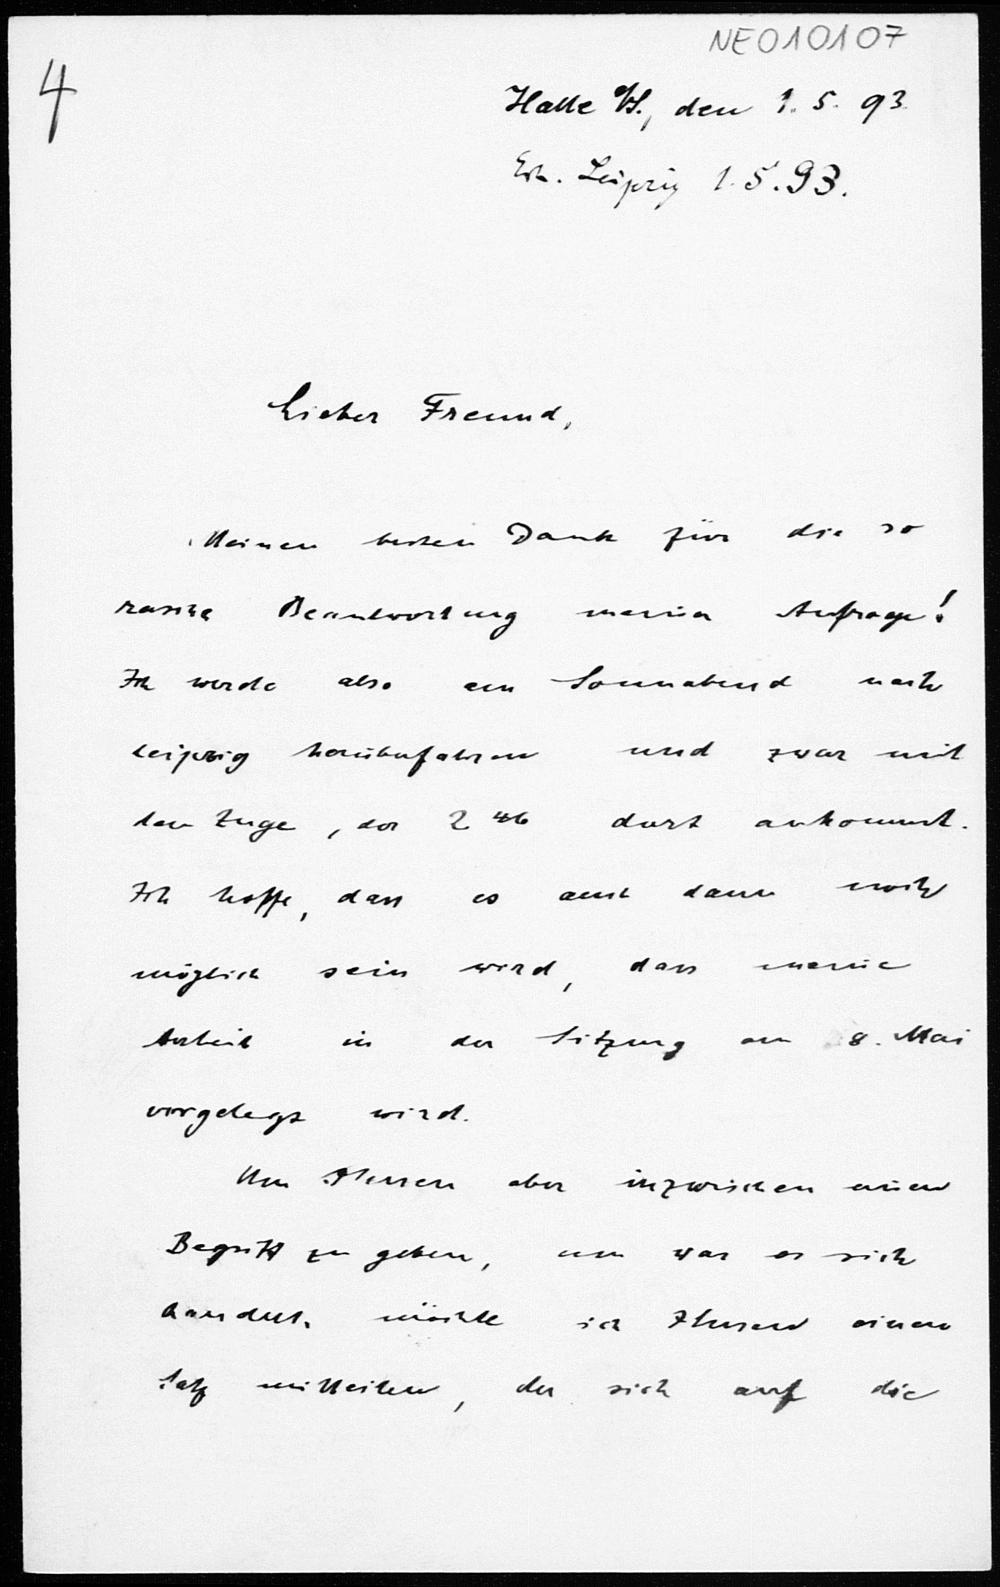 NE010107
4
Halle a/S., den 1. 5. 93.
Erh. Leipzig 1.5.93.
Lieber Freund,
Meinen besten Dank für die so
rasche Beantwortung meiner Anfrage!
Ich werde also am Sonnabend nach
Leipzig herüberfahren und zwar mit
dem Zuge, der 2 46 dort ankommt.
Ich hoffe, dass es auch dann noch
möglich sein wird, dass meine
Arbeit in der Sitzung am 8. Mai
vorgelegt wird.
Um Ihnen aber inzwischen einen
Begriff zu geben, um was es sich
handelt, möchte ich Ihnen einen
Satz mitteilen, der sich auf die